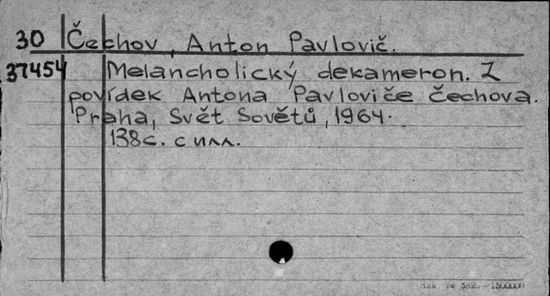 30 Čechov, Anton Pavlovič.
37454 Melancholický dekameron. Z
povídek Antona Pavloviče Čechova.
Praha, Svět Sovětů, 1964.
138с. с илл.